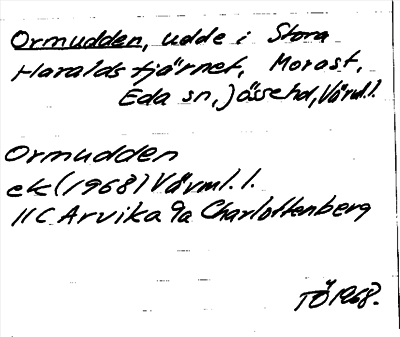 Ormudden, udde i Stora
Haralds tjärnet, Morast,
Eda sn, Jössehd, Värml.l.
Ormudden
ek (1968) Värml.l.
11C Arvika 9a Charlottenberg
TÖ 1968.